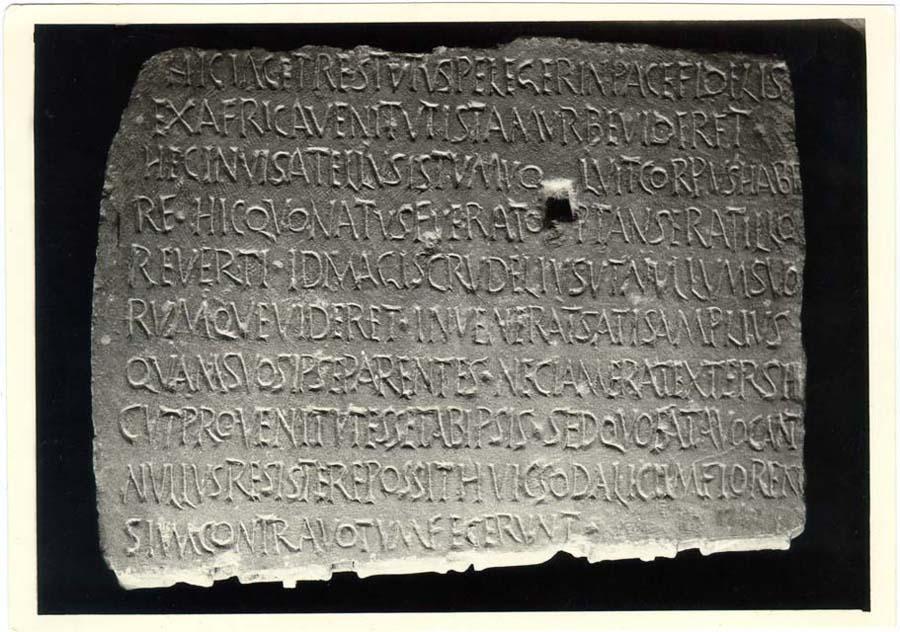 HIC IACET RESTVTVS PELEGER IN PACE FIDELIS
EX AFRICA VENIT VT ISTAM VRBE VIDERET
HEC INVISA TELLVS ISTVM VO LVIT CORPVS HABE
RE HIC QVO NATVS FVERAT OPTANS ERAT ILLO
REVERTI ID MAGIS CRVDELIVS VT NVLLVM SVO
RVMQVE VIDERET INVENERAT SATIS AMPLIVS
QVAM SVOS IPSE PARENTES NEC IAM ERAT EXTER SI
CVT PROVENIT VT ESSET AB IPSIS SED QVO FATA VOCANT
NVLLVS RESISTERE POSSIT HVIC SODALICIVM FLOREN
SIVM CONTRA VOTVM FECERVNT